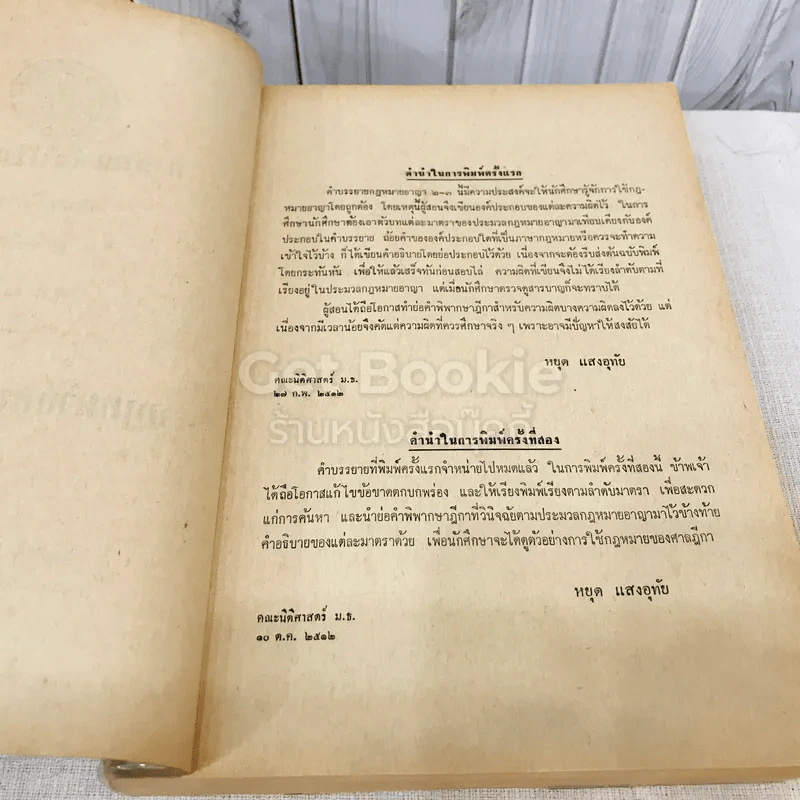 คำนำในการพิมพ์ครั้งแรก
คำบรรยายกฎหมายอาญา ๒-๓ นี้มีความประสงค์จะให้นักศึกษารู้จักการใช้กฎ-
หมายอาญาโดยถูกต้อง โดยเหตุนี้ผู้สอนจึงเขียนองค์ประกอบของแต่ละความผิดไว้ ในการ
ศึกษานักศึกษาต้องเอาตัวบทแต่ละมาตราของประมวลกฎหมายอาญามาเทียบเคียงกับองค์
ประกอบในคำบรรยาย ถ้อยคำขององค์ประกอบใดที่เป็นภาษากฎหมายหรือควรจะทำความ
เข้าใจไว้บ้าง ก็ได้เขียนคำอธิบายโดยย่อประกอบไว้ด้วย เนื่องจากจะต้องรีบส่งต้นฉบับพิมพ์
โดยกระทันหัน เพื่อให้แล้วเสร็จทันก่อนสอบไล่ ความผิดที่เขียนจึงไม่ได้เรียงลำดับตามที่
เรียงอยู่ในประมวลกฎหมายอาญา แต่เมื่อนักศึกษาตรวจดูสารบาญก็จะทราบได้
ผู้สอนได้ถือโอกาสทำย่อคำพิพากษาฎีกาสำหรับความผิดบางความผิดลงไว้ด้วย แต่
เนื่องจากมีเวลาน้อยจึงคัดแต่ความผิดที่ควรศึกษาจริง ๆ เพราะอาจมีปัญหาให้สงสัยได้
หยุด แสงอุทัย
คณะนิติศาสตร์ ม.ธ.
๒๗ ก.พ. ๒๕๑๒
Get Bookie
ร้านหนังสือบุ๊คกี้
คำนำในการพิมพ์ครั้งที่สอง
คำบรรยายที่พิมพ์ครั้งแรกจำหน่ายไปหมดแล้ว ในการพิมพ์ครั้งที่สองนี้ ข้าพเจ้า
ได้ถือโอกาสแก้ไขข้อขาดตกบกพร่อง และให้เรียงพิมพ์เรียงตามลำดับมาตรา เพื่อสะดวก
แก่การค้นหา และนำย่อคำพิพากษาฎีกาที่วินิจฉัยตามประมวลกฎหมายอาญามาไว้ข้างท้าย
คำอธิบายของแต่ละมาตราด้วย เพื่อนักศึกษาจะได้ดูตัวอย่างการใช้กฎหมายของศาลฎีกา
หยุด แสงอุทัย
คณะนิติศาสตร์ ม.ธ.
๑๐ ต.ค. ๒๕๑๒